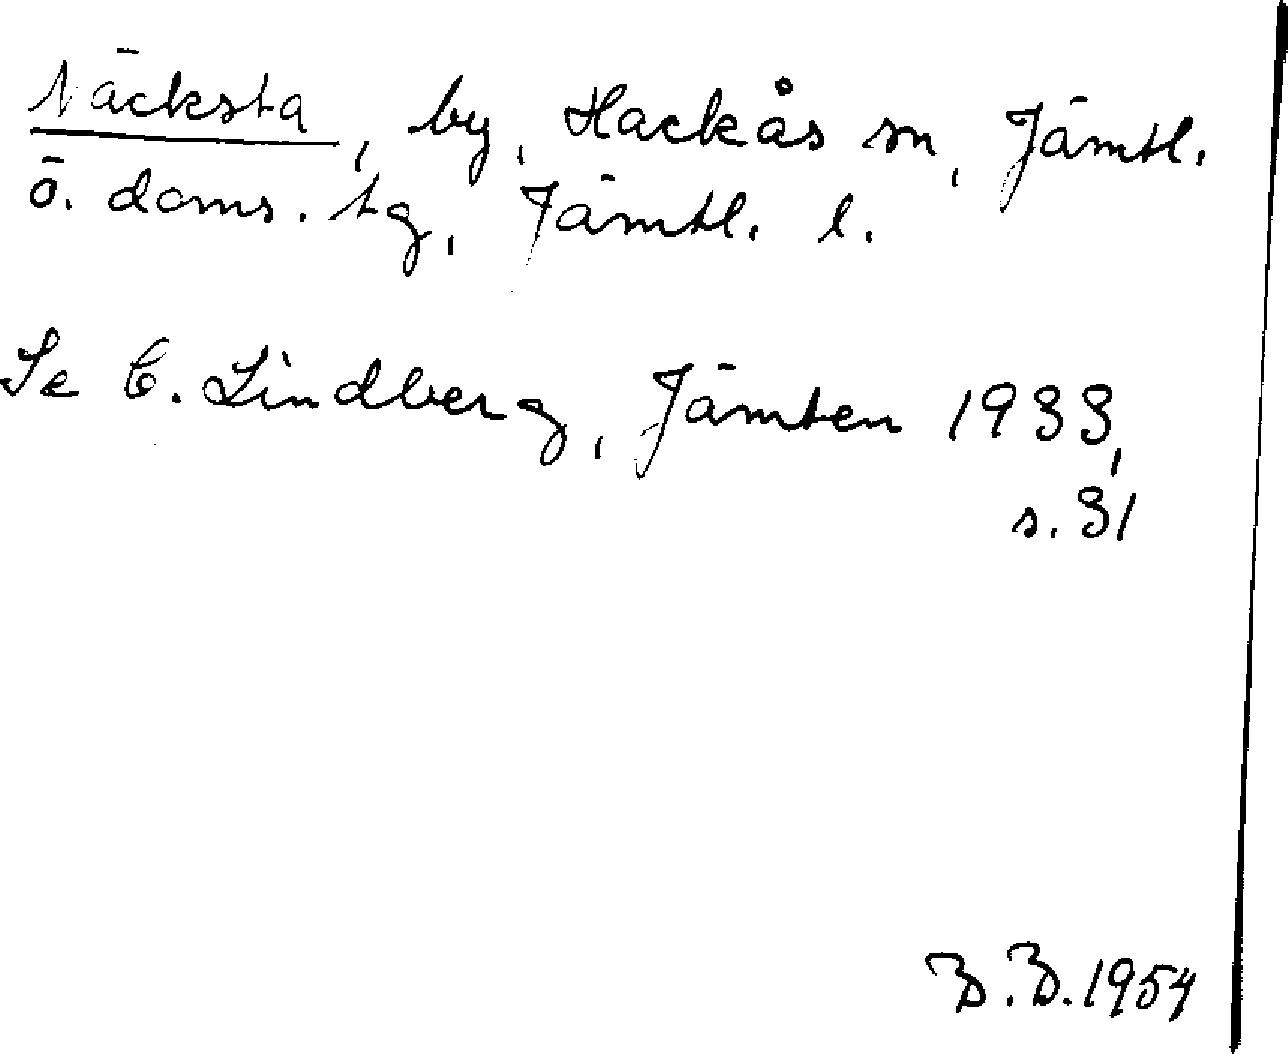 Näcksta, by, Hackås sn, Jämtl.
ö. doms. tg, Jämtl. l.
Se C. Lindberg, Jämten 1933,
s. 31
B.B. 1954